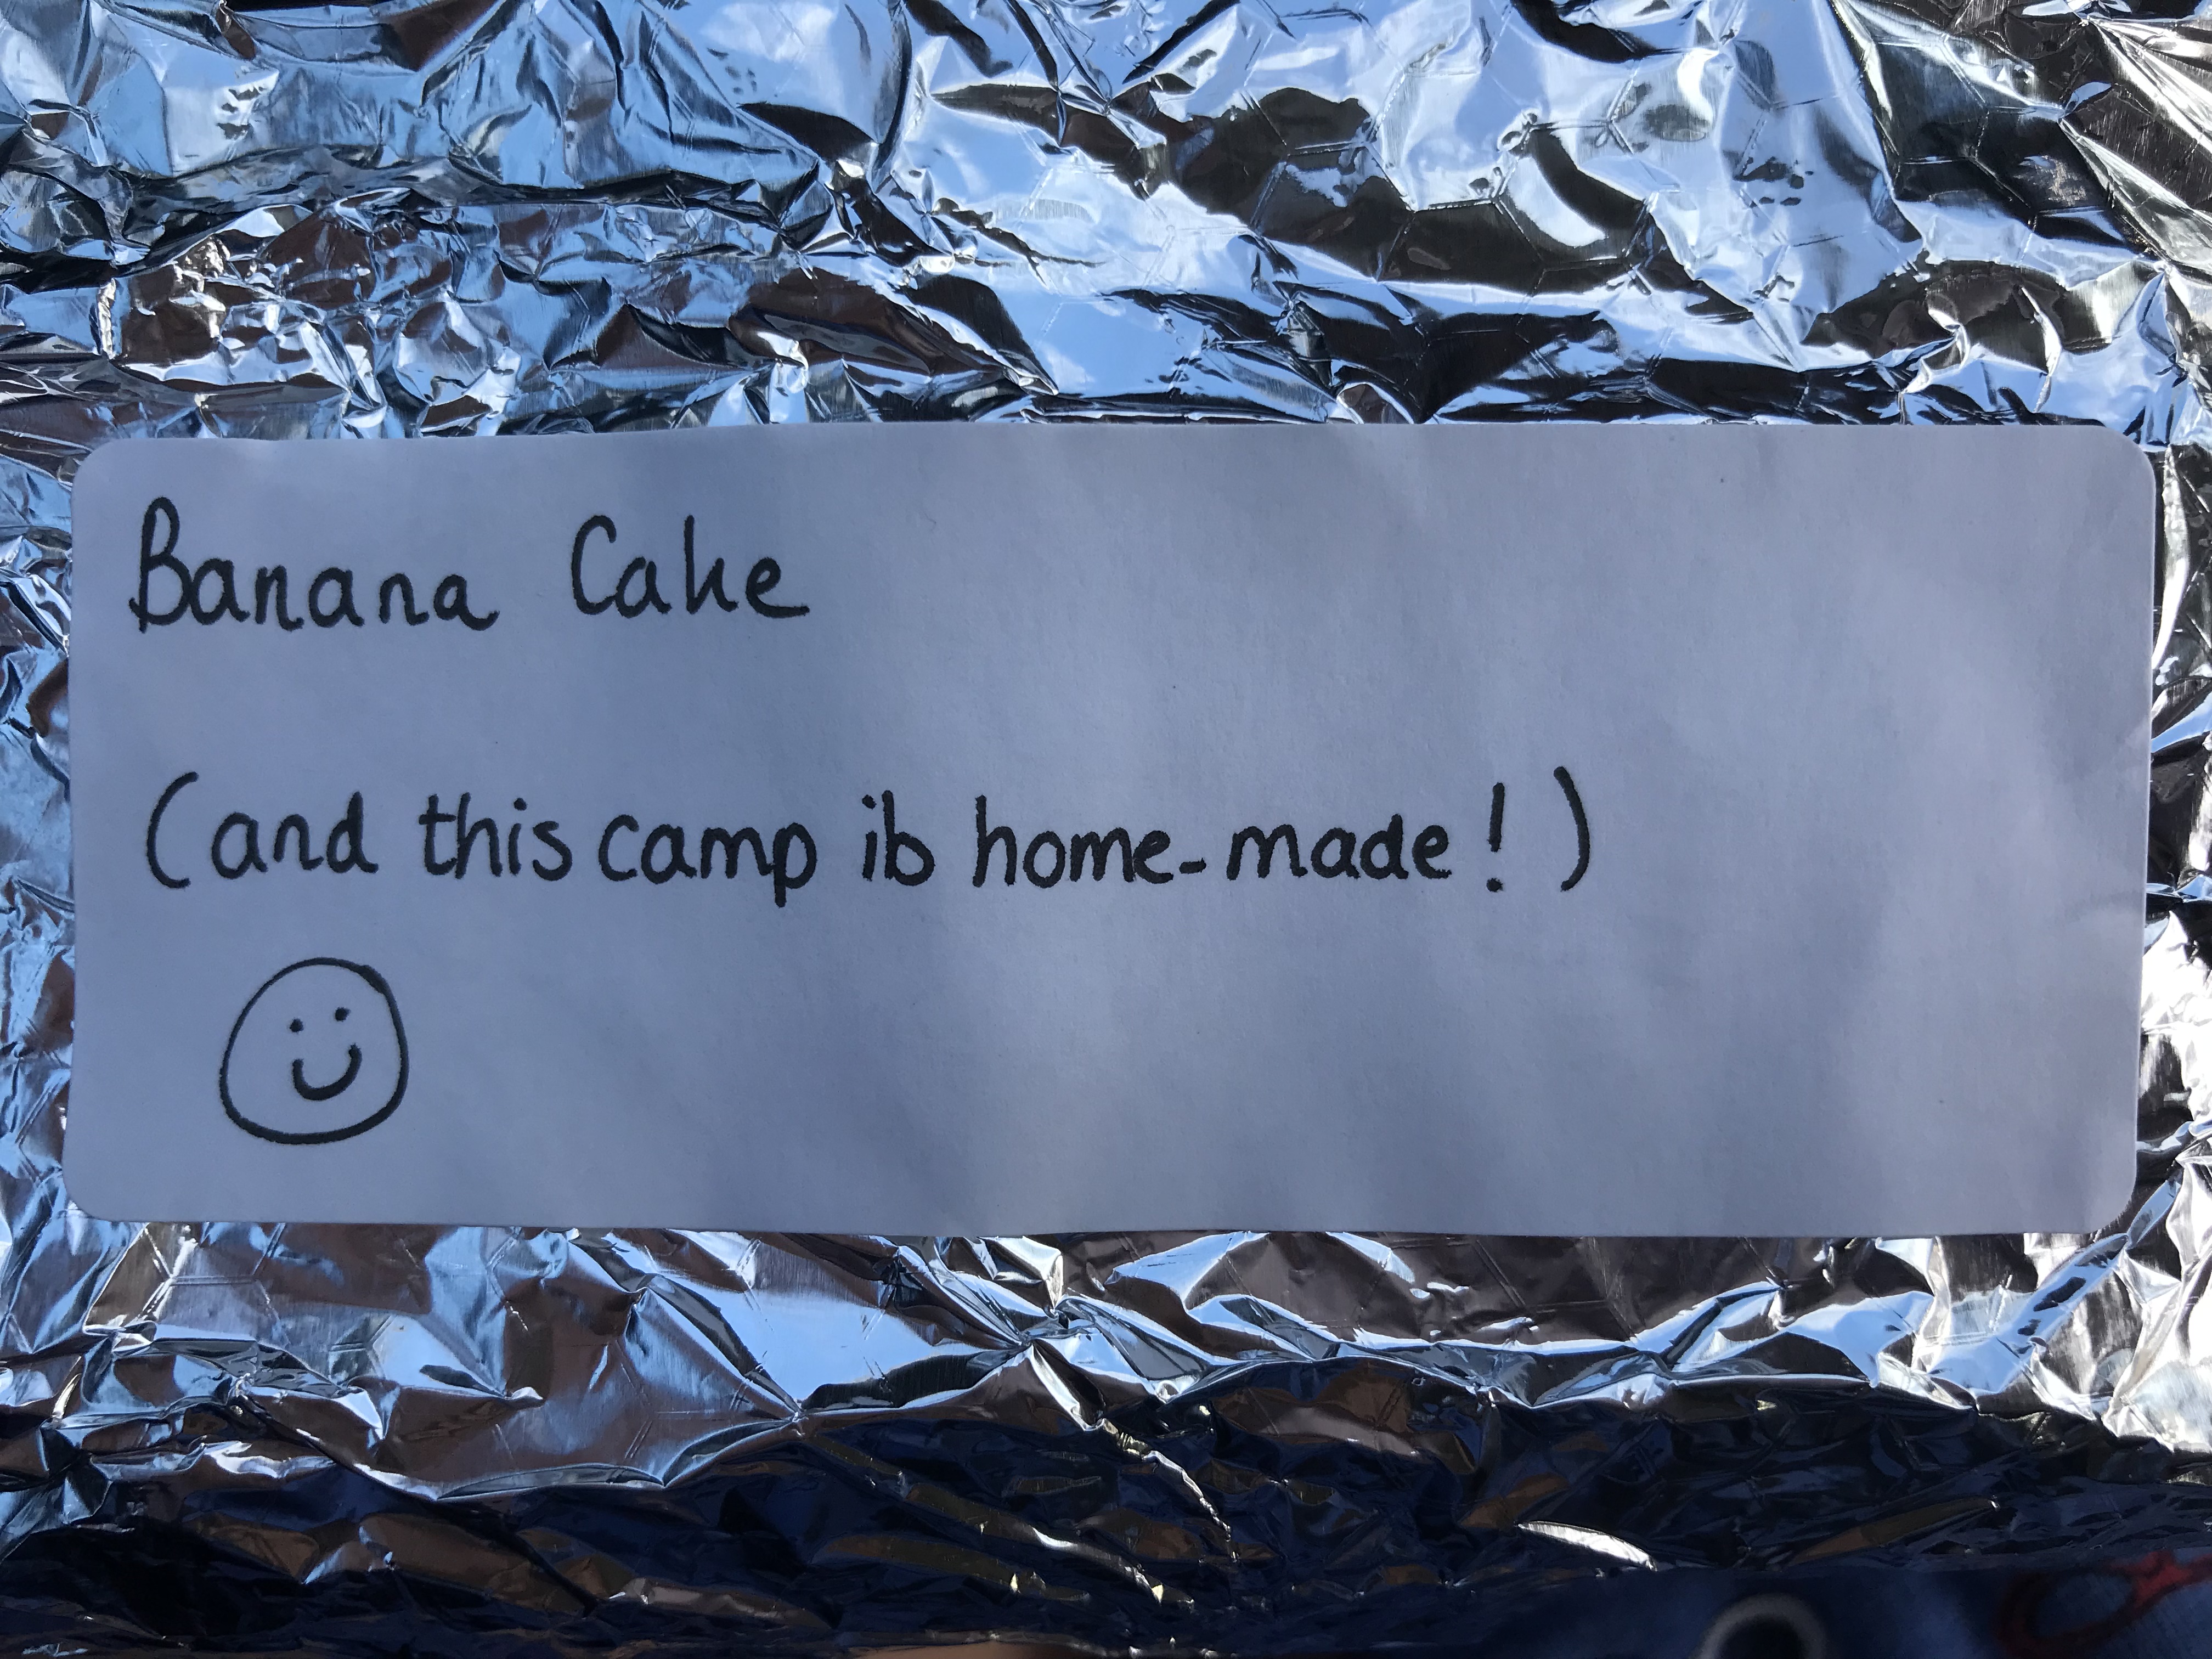 Banana Cake
(and this camp ib home-made!)